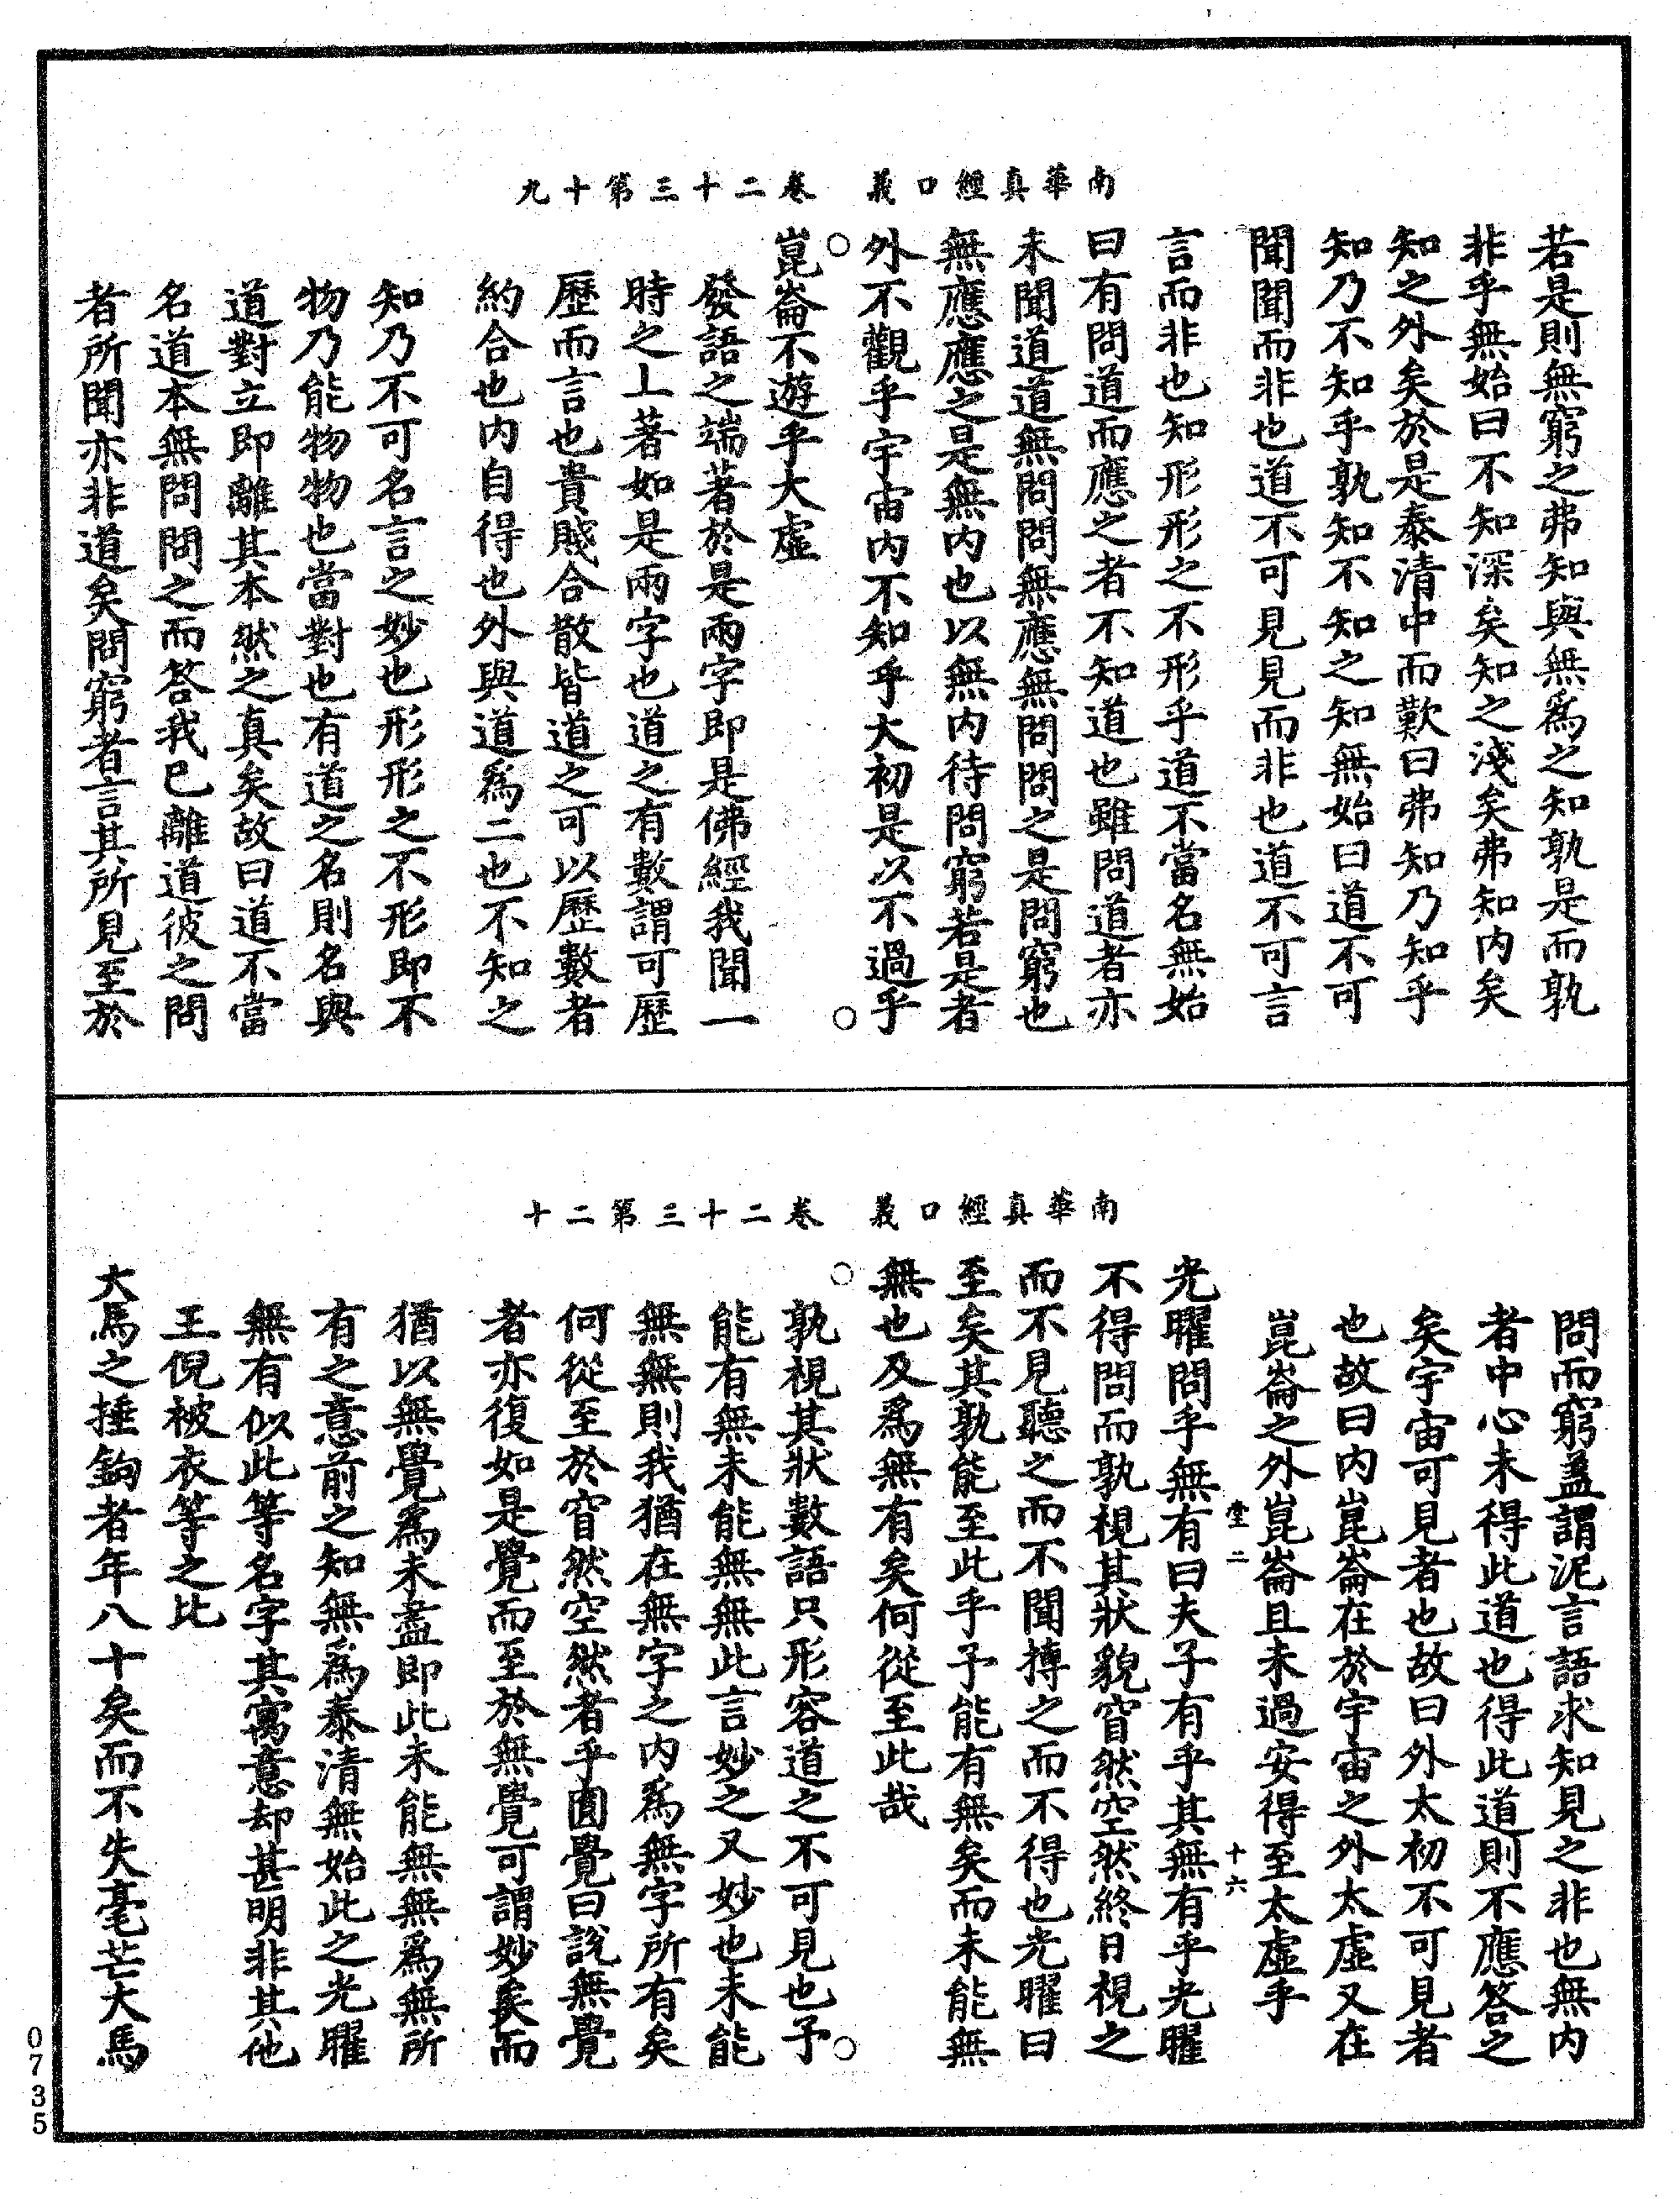 南華真經口義　卷二十三第十九
若是則無窮之弗知與無爲之知孰是而孰
非乎無始曰不知深矣知之淺矣弗知內矣
知之外矣於是泰清中而歎曰弗知乃知乎
知乃不知乎孰知不知之知無始曰道不可
聞聞而非也道不可見見而非也道不可言
言而非也知形形之不形乎道不當名無始
曰有問道而應之者不知道也雖問道者亦
未聞道道無問問無應無問問之是問窮也
無應應之是無內也以無內待問窮若是者
外不觀乎宇宙內不知乎大初是以不過乎
崑崙不遊乎大虛
發語之端著於是兩字即是佛經我聞一
時之上著如是兩字也道之有數謂可歷
歷而言也貴賤合散皆道之可以歷數者
約合也內自得也外與道爲二也不知之
知乃不可名言之妙也形形之不形即不
物乃能物物也當對也有道之名則名與
道對立即離其本然之真矣故曰道不當
名道本無問問之而答我已離道彼之問
者所聞亦非道矣問窮者言其所見至於
南華真經口義　卷二十三第二十
問而窮蓋謂泥言語求知見之非也無內
者中心未得此道也得此道則不應答之
矣宇宙可見者也故曰外太初不可見者
也故曰內崑崙在於宇宙之外太虛又在
崑崙之外崑崙且未過安得至太虛乎
堂二　十六
光曜問乎無有曰夫子有乎其無有乎光曜
不得問而孰視其狀貌窅然空然終日視之
而不見聽之而不聞摶之而不得也光曜曰
至矣其孰能至此乎予能有無矣而未能無
無也及爲無有矣何從至此哉
孰視其狀數語只形容道之不可見也予
能有無未能無無此言妙之又妙也未能
無無則我猶在無字之內爲無字所有矣
何從至於窅然空然者乎圓覺曰說無覺
者亦復如是覺而至於無覺可謂妙矣而
猶以無覺爲未盡即此未能無無爲無所
有之意前之知無爲泰清無始此之光曜
無有似此等名字其寓意却甚明非其他
王倪被衣等之比
大馬之捶鉤者年八十矣而不失毫芒大馬
0735